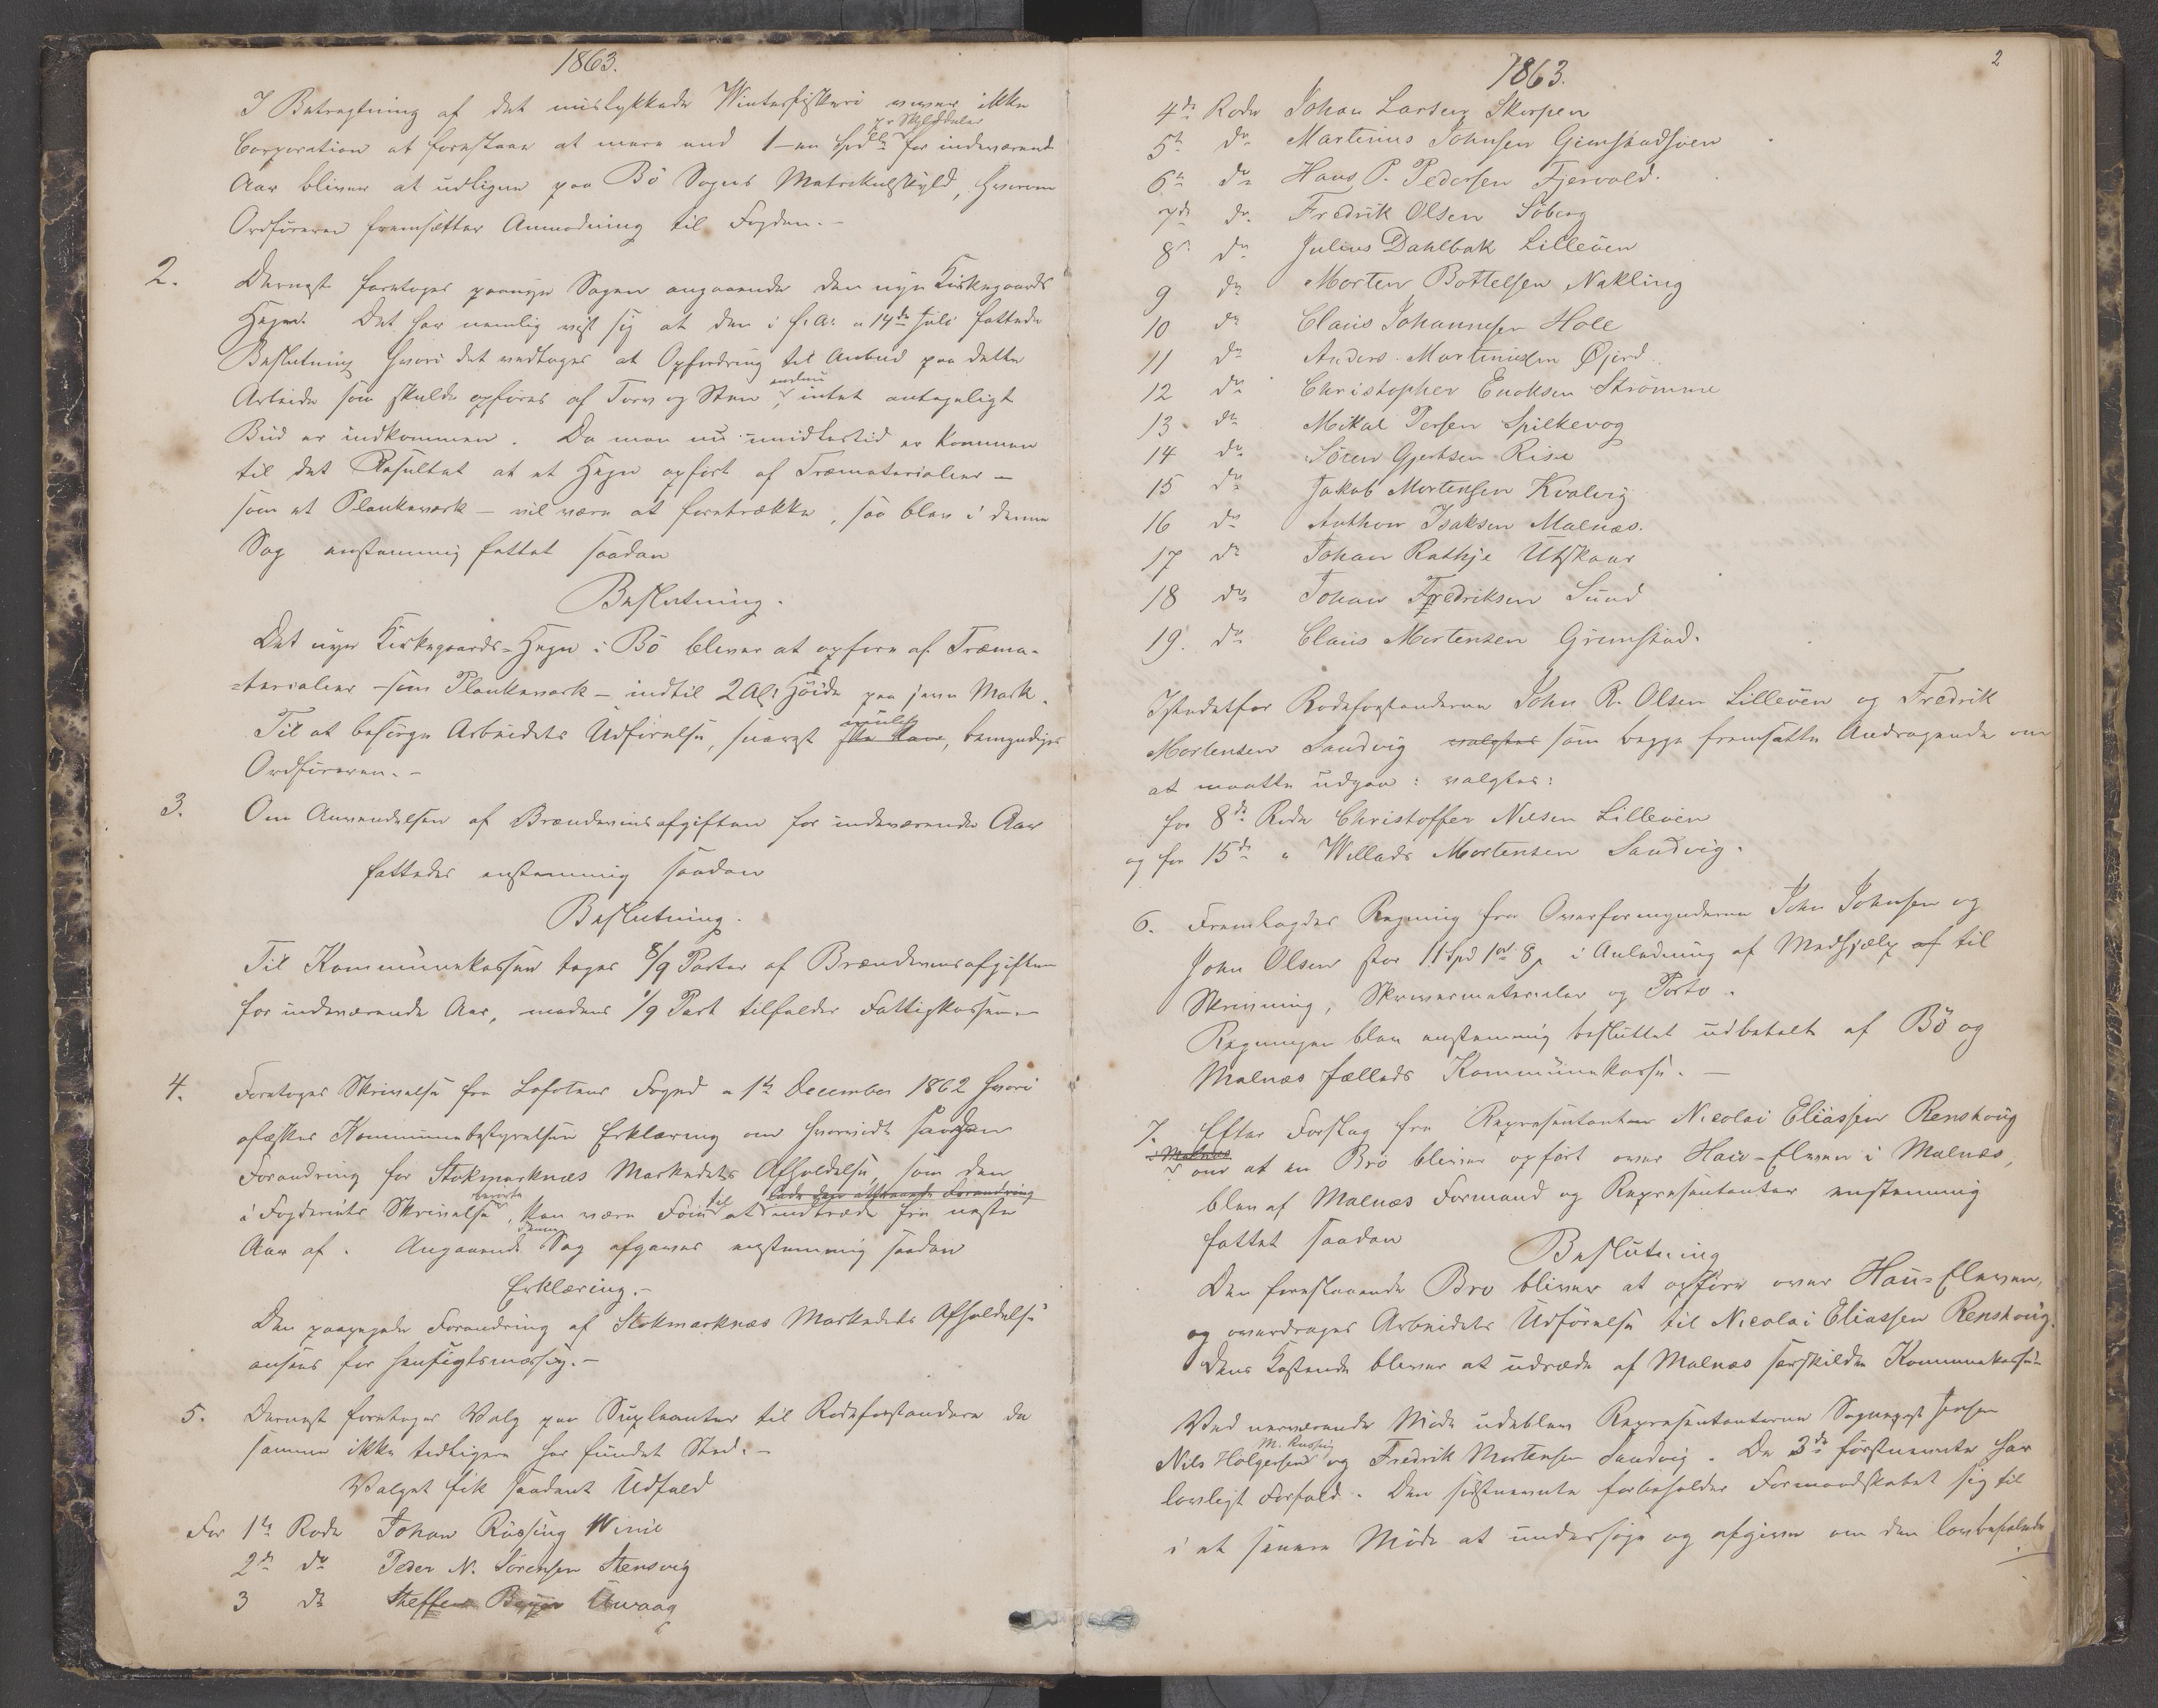 1863.
I Betragtning af det mislykkede Winterfiskeri evner ikke
Corporation at foreslaae at mere end 1 – en Spdlr pr Skylddaler for indeværende
Aar bliver at udligne paa Bö Sogns Matrikulskyld, hvorom
Ordföreren fremsætter Anmodning til Fogden. –
2. Dernæst foretoges paanye Sagen angaaende den nye Kirkegaards
Hegn. Det har nemlig vist sig at den i f. A. a 14de Juli fattede
Beslutning hvori det vedtoges at Opfordring til Anbud paa dette
Arbeide som skulde opføres af Torv og Steen, endnu intet antageligt
Bud er indkommen. Da man nu imidlertid er kommen
til det Resultat at et Hegn opfört af Træmaterialier –
som et Plankeværk – vil være at foretrække, saa blev i denne
Sag enstemmig fattet saadan
Beslutning.
Det nye Kirkegaards-Hegn i Bö bliver at opføre af Træma-
=terialier – som Plankeværk – indtil 2 Al: Höide paa jevn Mark.
Til at besörge Arbeidets Udförelse, snarest muligt, bemyndiges
Ordföreren. –
3. Om Anvendelsen af Brændevinsafgiften for indeværende Aar
fattedes enstemmig saadan
Beslutning.
Til Kommunekassen tages 8/9 Parter af Brændevinsafgiften
for indeværende Aar, medens 1/9 Part tilfalder Fattigkassen. –
4. Foretoges Skrivelse fra Lofotens Foged a 1ste December 1862 hvori
afæskes Kommunebestyrelsen Erklæring om hvorvidt saadan
Forandring for Stokmarknæs Markedets Afholdelse, som den
i Fogderiets Skrivelse berørte, kan være Föie til at lade den attraaede Forandring indtræde fra næste
Aar af. Angaaende denne Sag afgaves enstemmig saadan
Erklæring. –
Den paapegede Forandring af Stokmarknæs Markedets Afholdelse
ansees for hensigtsmæssig. –
5. Dernæst foretoges Valg paa Supleanter til Rodeforstandere da
samme ikke tidligere har fundet Sted. –
Valget fik saadant Udfald
For 1ste Rode Johan Rössing Winie
2den do Peder N. Sörensen Stensvig
3 do Steffen Beyer Uvaag
1863.
2
4de Rode Johan Larsen Skorpen
5te do Martinus Johnsen Gimstadsöen
6te do Hans P. Pedersen Fjervold.
7de do Fredrik Olsen Söberg
8de do Julius Dahlbak Lilleöen
9 do Morten Bottelsen Nykling
10 do Claus Johannesen Hole
11 do Anders Martiniusen Øjord
12 do Christopher Enoksen Strömme
13 do Mikal Persen Spilkevog
14 do Sören Gjertsen Risø
15 do Jakob Mortensen Kvalvig
16 do Anthon Isaksen Malnæs.
17 do Johan Rathje Utskaar
18 do Johan Fredriksen Sund
19. do Claus Mortensen Grimstad.
Istedetfor Rodeforstanderne John R. Olsen Lilleöen og Fredrik
Mortensen Sandvig valgtes som begge fremsatte Andragende om
at maatte udgaa: valgtes:
for 8de Rode Christoffer Nilsen Lilleöen
og for 15de " Willads Mortensen Sandvig.
6. Fremlagdes Regning fra Overformynderne John Johnsen og
John Olsen stor 11 Spd 1 ort 8 s i Anledning af Medhjælp af til
Skrivning, Skrivematerialer og Porto.
Regningen blev enstemmig besluttet udbetalt af Bö og
Malnæs fælleds Kommunekasse. –
7. Efter Forslag fra Repræsentanten Nicolai Eliassen Renshoug
i Malnæs om at en Bro bliver opfört over Hau-Elven i Malnæs,
blev af Malnæs Formænd og Repræsentanter enstemmig
fattet saadan
Beslutning
Den foreslaaede Bro bliver at opföre over Hau-Elven,
og overdrages Arbeidets Udförelse til Nicolai Eliassen Renshoug.
Dens Kostende bliver at udrede af Malnæs særskildte Kommunekasse
Ved nærværende Möde udeblev Repræsentanterne Sognepræst Jensen
Nils Holgersen M. Russing og Fredrik Mortensen Sandvig. De 3de förstnævnte har
lovligt Forfald. Den sidstnævnte forbeholder Formandskabet sig til
i et senere Möde at undersöge og afgive om den lovbefalede